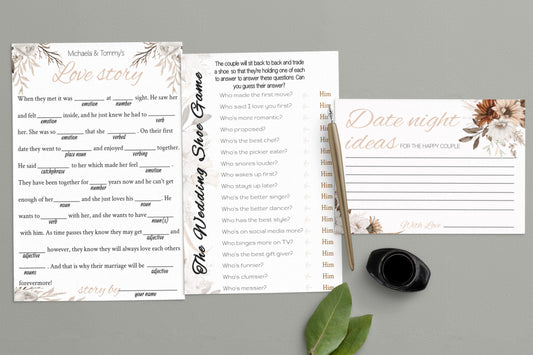 Michaela & Tommy's
Love story
When they met it was ______ at ______ sight. He saw her
emotion number
and felt ______ inside, and he just knew he had to ______
emotion verb
her. She was so ______ that she ______. On their first
emotion verbed
date they went to ______ and enjoyed ______ together.
place noun verbing
He said ______ to her which made her feel ______.
catchphrase emotion
They have been together for ______ years now and he can't get
number
enough of her ______ and she just loves his ______. He
nouns nouns
wants to ______ with her, and she wants to have ______
verb noun(s)
with him. As time passes they know they may get ______ and
adjective
______ however, they know they will always love each others
adjective
______. And that is why their marriage will be ______
nouns adjective
forevermore!
story by ______
your name
The Wedding Shoe Game
The couple will sit back to back and trade
a shoe so that they're holding one of each
to answer to answer these questions. Can
you guess their answer?
Who made the first move? Him
Who said I love you first? Him
Who's more romantic? Him
Who proposed? Him
Who's the best chef? Him
Who's the pickier eater? Him
Who snores louder? Him
Who wakes up first? Him
Who stays up later? Him
Who's the better singer? Him
Who's the better dancer? Him
Who has the best style? Him
Who's on social media more? Him
Who binges more on TV? Him
Who's the best gift giver? Him
Who's funnier? Him
Who's clumsier? Him
Who's messier? Him
Date night
ideas FOR THE HAPPY COUPLE
With Love